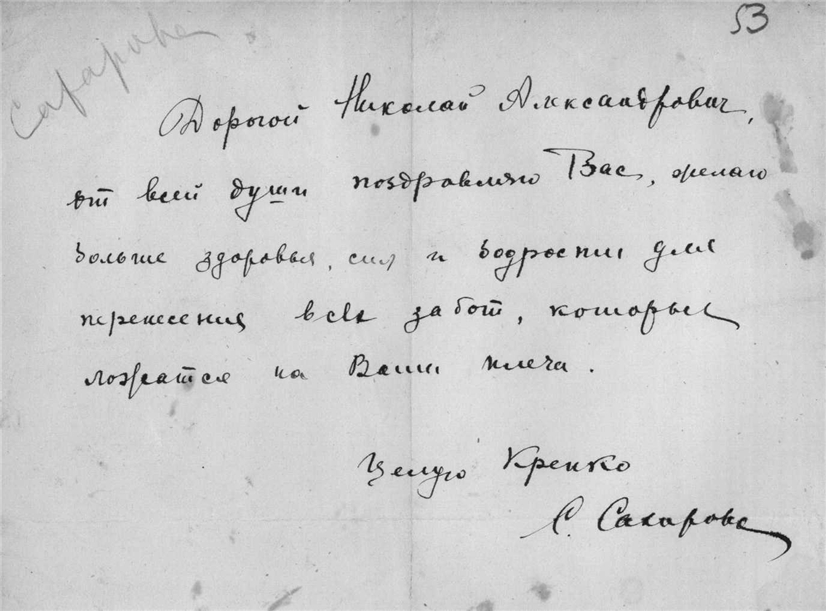 53
Сахарова
Дорогой Николай Александрович,
от всей души поздравляю Вас, желаю
больше здоровья, сил и бодрости для
перенесения всех забот, которые
ложатся на Ваши плеча.
Целую крепко
С. Сахарова